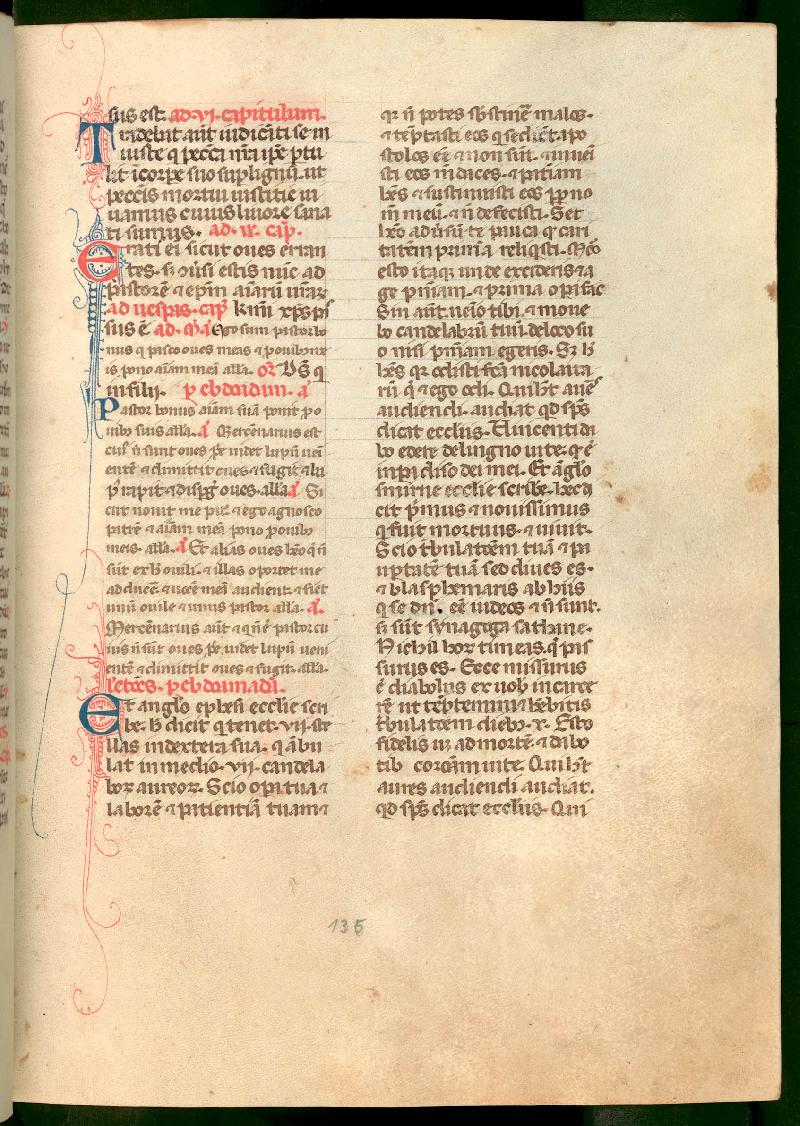 sus est. ad. vi. capitulum.
Tradebat aut̄ iudicāti se in
iuste q̄ pecc̄a nr̄a ip̄e ptu
lit ī corpe suo sup lignū. ut
pecc̄is mortui iusticie ui
uamus cuius liuore sana
ti sumus. ad. ix. cap̄.
Erati ei sicut oues erran
tes. s; 9ūsi estis nūc ad
pastorē ⁊ ep̄m aīarū ur̄ar̄
ad uesp̄is. cap̄ Kmi xp̄s ps̄
sus ē ad. m̄a Ego sum pastor bo
nus q̄ pasco oues meas ⁊ p ouib; me
is pono aīam meā alla. or̄ Ds̄ q̄
in filij. p ebdoīdam. a̅
Pastor bonus aīam suā ponit p o
uib; suis alla. a̅ Mercēnarius est
cui' n̄ sunt oues p̄e uidet lupū uen̄
entē ⁊ dimittit oues ⁊ fugit ⁊ lu
p' rapit ⁊ disp̄ḡ oues. alla a̅ Si
cut nouit me pat̄ ⁊ ego agnosco
patrē ⁊ aīam meā pono p ouib;
meis. alla. a̅ Et alias oues hēo q̄ n̄
sūt ex h̄ ouili. ⁊ illas oportet me
ad ducē. ⁊ uocē meā audient. ⁊ fiet
unū ouile ⁊ unus pastor alla. a̅.
Mercēnarius aūt ⁊ q̄ n̄ ē pastor cu
ius n̄ sūt oues p̄e uidet lupū ueni
entē ⁊ dimittit oues ⁊ fugit. alla.
letōes. p ebdomadā.
Et anglo ephesi ecclie scri
be. h̄ dicit q̄ tenet. vij. ste
llas in dextera sua. q̄ ābu
lat in medio. vij. candela
boꝝ aureoꝝ. Scio opa tua ⁊
laborē ⁊ patientiā tuam ⁊
qr n̄ potes sb̄stinē malos.
⁊ tēptasti eos q̄ se dicūt apo
stolos eē ⁊ non sūt. ⁊ inueī
sti eos mēdaces. ⁊ pat̄iam
hēs ⁊ sustinuisti eos pp no
m̄ meū. ⁊ n̄ defecisti. Set
hēo aduersū te pauca q̄ cari
tatēm prima reliq̄sti. Mēo
esto itaq; unde excideris ⁊ a
ge p̄niam. ⁊ prima opa fac
Sin aūt. ueīo tibi. ⁊ moue
bo candelabrū tuū. de loco su
o nisi p̄niam egeris. S; h̄
hēs qr odisti fc̄a nicolaita
rū q̄ ⁊ ego odi. Qui h̄t aurē
audiendi. audiat qd sp̄s
dicat ecclīis. Uincenti da
bo edere de ligno uite. q̄ ē
in padiso dei mei. Et āglo
smirne ecclie scribe. hec di
cit p̄mus ⁊ nouissimus
q̄ fuit mortuus. ⁊ uiuit.
Scio tbulatōem tuā ⁊ pa
uptatē tuā sed diues es.
⁊ blasphemaris ab hiis
q̄ se dn̄t. eē iudeos ⁊ n̄ sunt.
s; sūt synagoga sathane.
Nichil hoꝝ timeas. q̄ pas
surus es. Ecce missurus
ē diabolus ex uob in carce
rē ut tēptemini ⁊ hēbitis
tbulatōem dieb;. x. Esto
fidelis usq; ad mortē. ⁊ dabo
tib corōam uite. Qui h̄t
aures audiendi audiat.
qd sp̄s dicat ecclīis. Qui
135